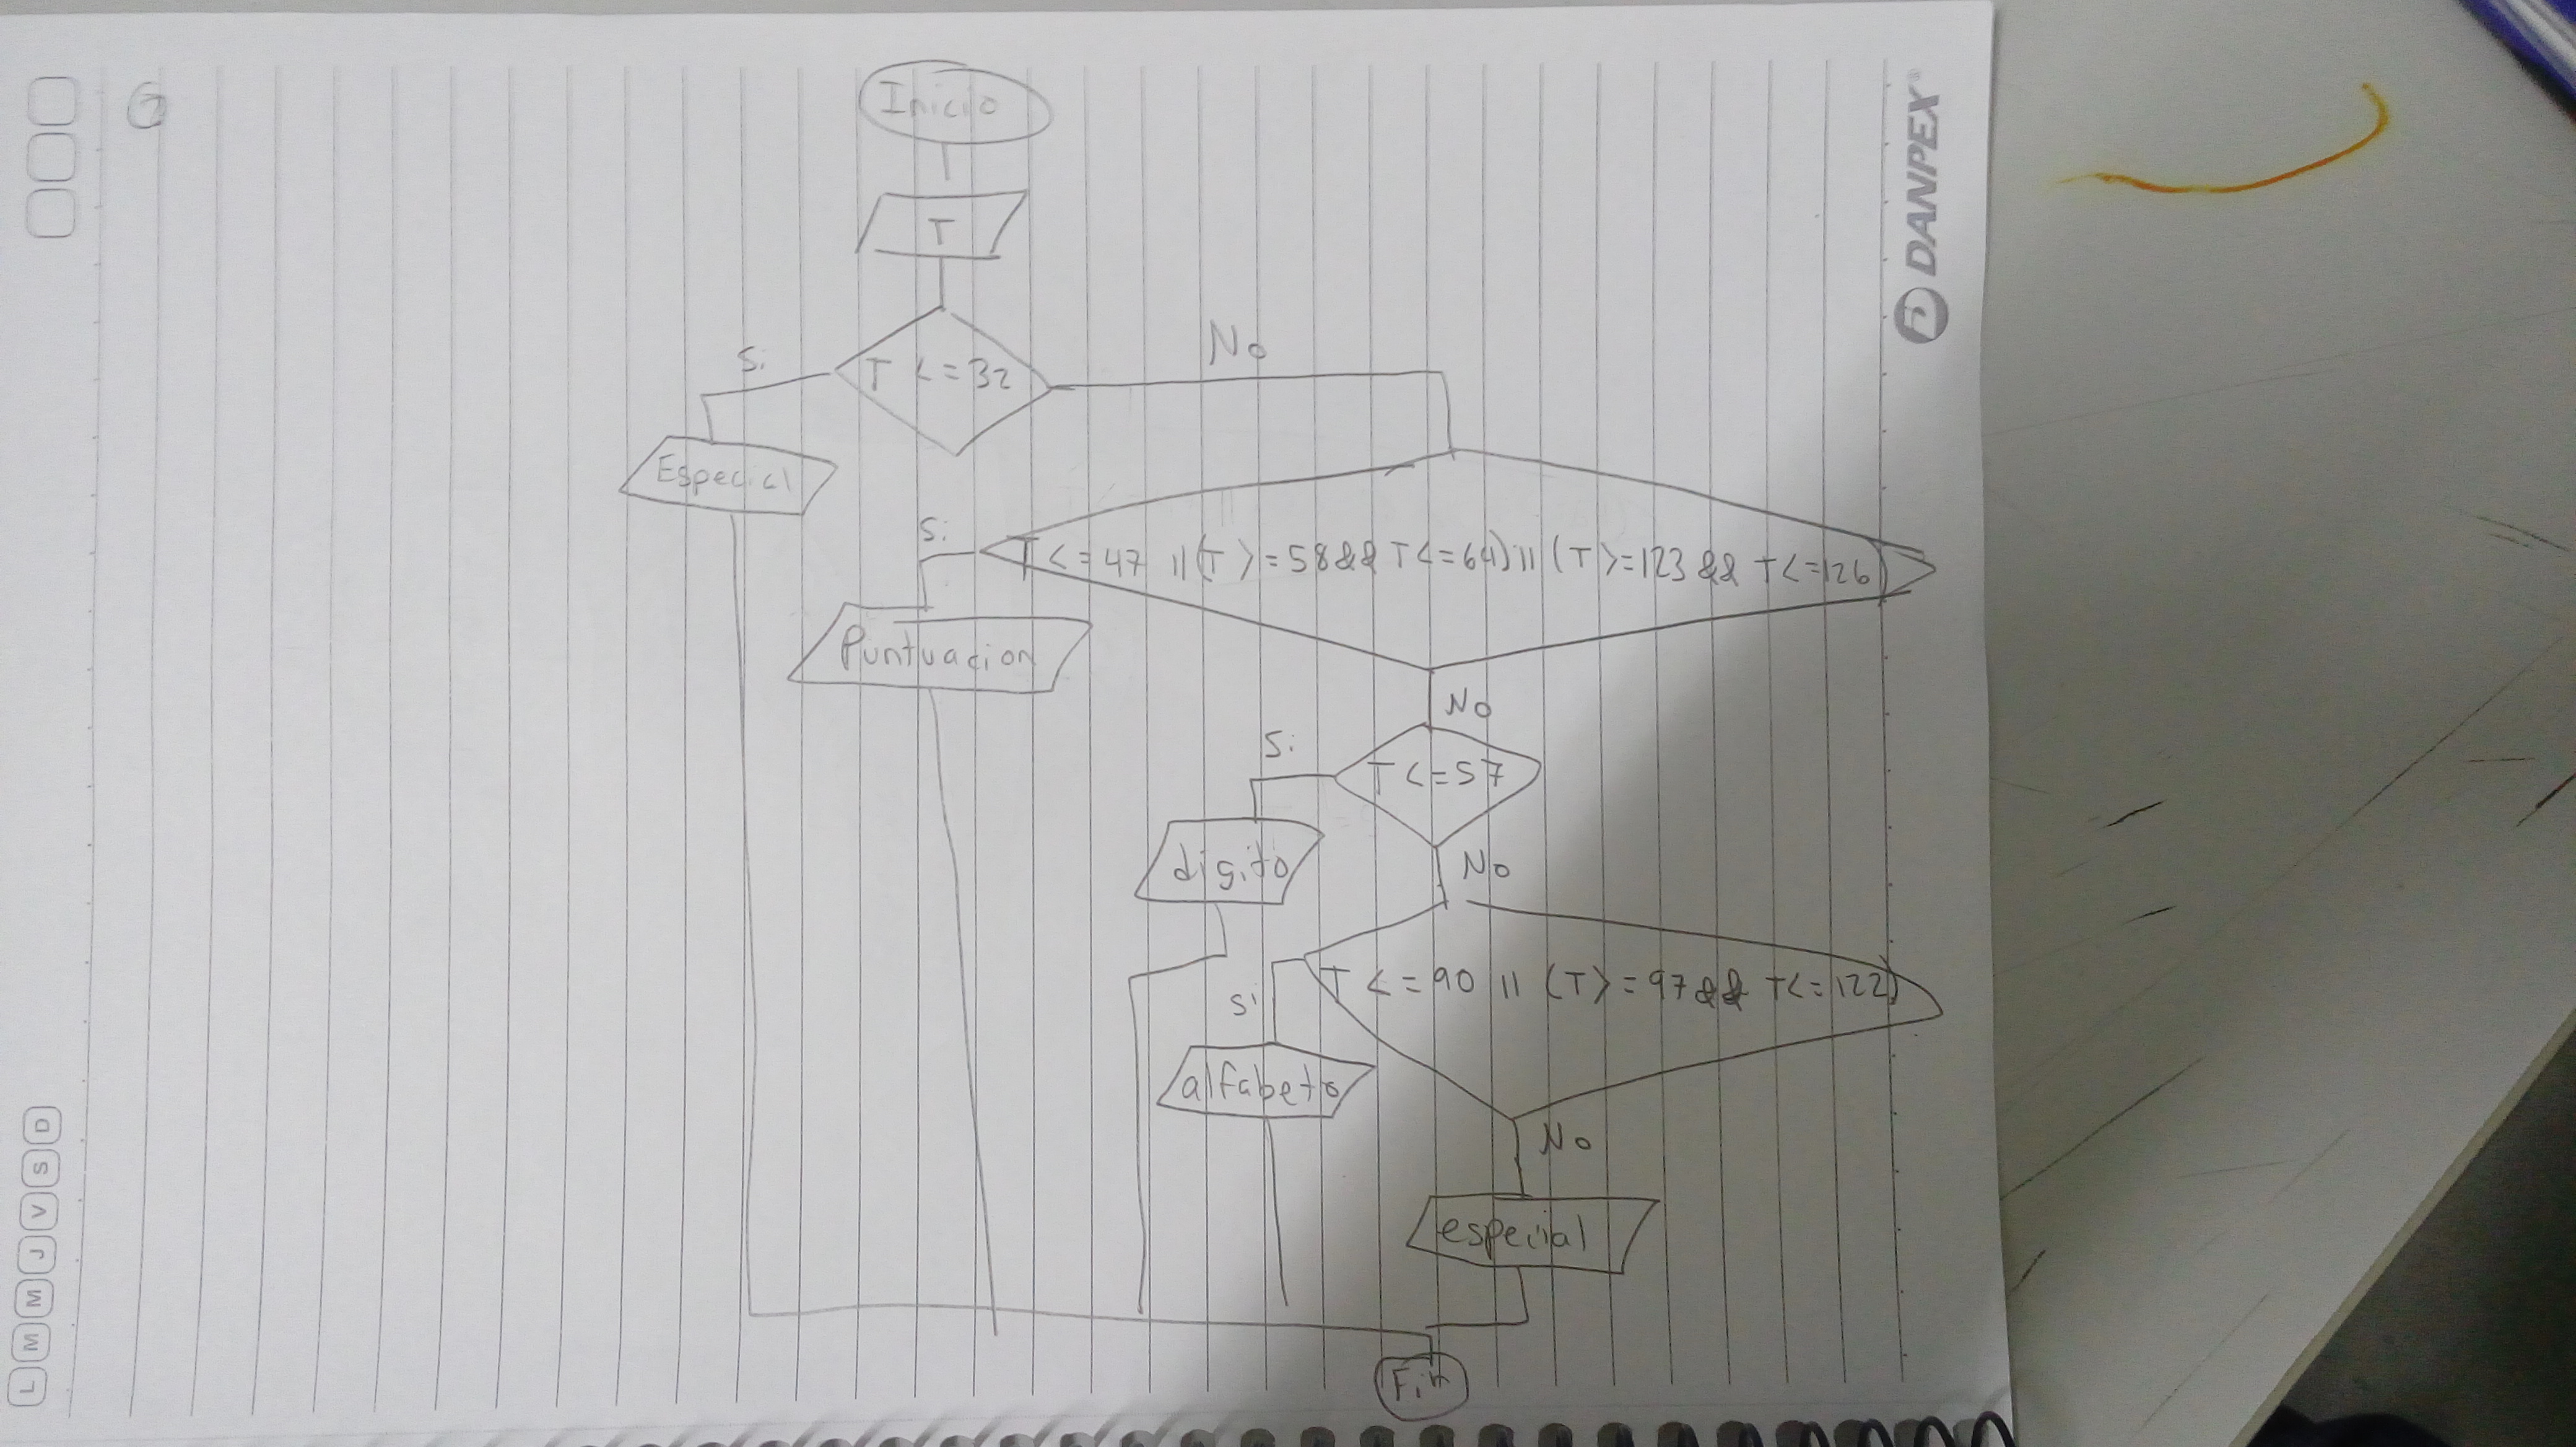 L M M J V S D
7
Inicio
T
T <= 32
Si
No
Especial
T <= 47 || (T >= 58 && T <= 64) || (T >= 123 && T <= 126)
Si
Puntuacion
No
T <= 57
Si
digito
No
T <= 90 || (T >= 97 && T <= 122)
Si
alfabeto
No
especial
Fin
DANPEX